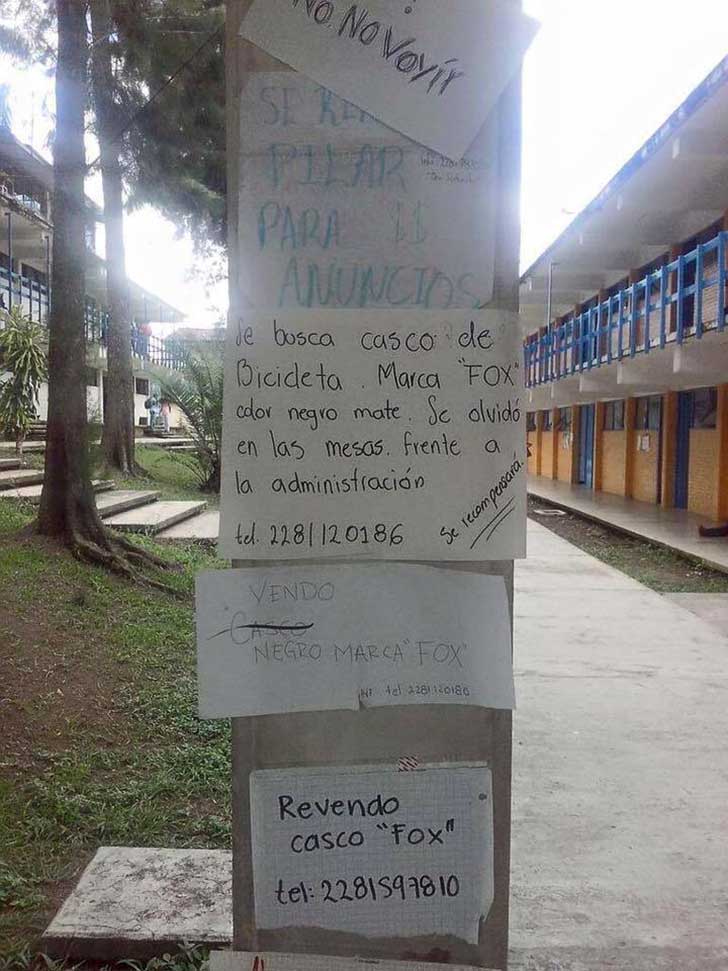 No, No Voy ir
SE
PILAR
PARA $$
ANUNCIOS
Se busca casco de
Bicicleta. Marca "FOX"
color negro mate. Se olvidó
en las mesas. frente a
la administración
tel. 2281120186
Se recompensará.
VENDO
CASCO
NEGRO MARCA "FOX"
INF. tel 2281120186
Revendo
casco "Fox"
tel: 2281597810